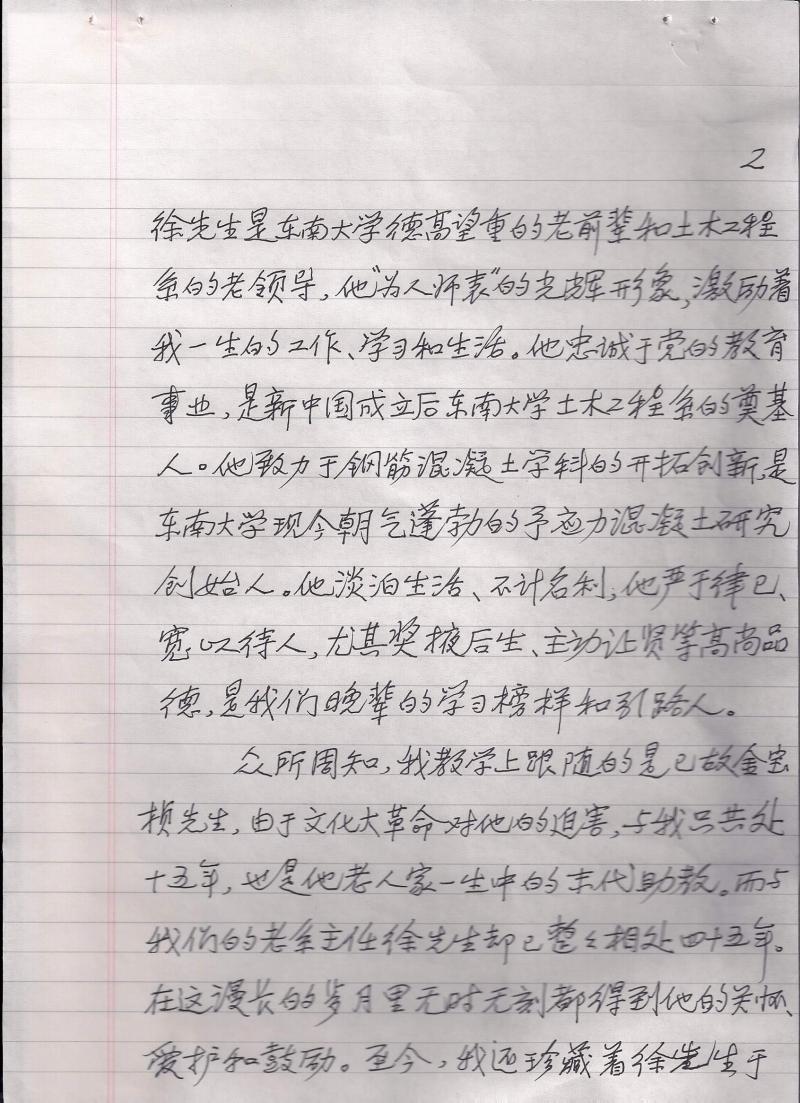 2
徐先生是东南大学德高望重的老前辈和土木工程
系的老领导，他“为人师表”的光辉形象，激励着
我一生的工作、学习和生活。他忠诚于党的教育
事业，是新中国成立后东南大学土木工程系的奠基
人。他致力于钢筋混凝土学科的开拓创新，是
东南大学现今朝气蓬勃的予应力混凝土研究
创始人。他淡泊生活、不计名利；他严于律已、
宽以待人，尤其奖掖后生、主动让贤等高尚品
德，是我们晚辈的学习榜样和引路人。
众所周知，我教学上跟随的是已故金宝
桢先生，由于文化大革命对他的迫害，与我只共处
十五年，也是他老人家一生中的末代助教。而与
我们的老系主任徐先生却已整々相处四十五年。
在这漫长的岁月里无时无刻都得到他的关怀、
爱护和鼓励。至今，我还珍藏着徐先生于